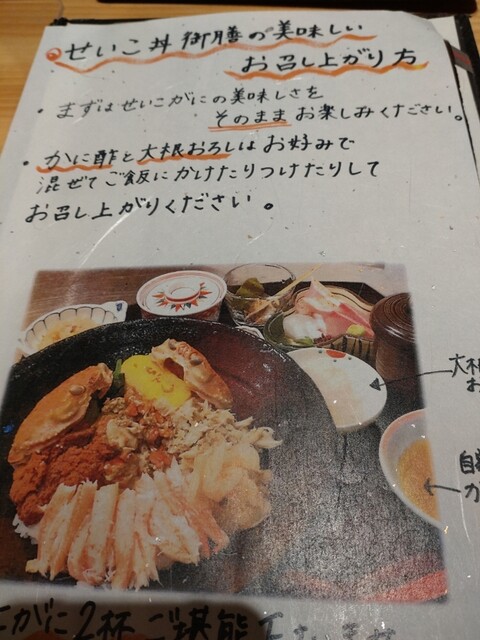 せいこ丼御膳の美味しい
お召し上がり方
・まずはせいこがにの美味しさを
そのままお楽しみください。
・かに酢と大根おろしはお好みで
混ぜてご飯にかけたりつけたりして
お召し上がりください。
大根
お
自
か
がに2杯ご堪能